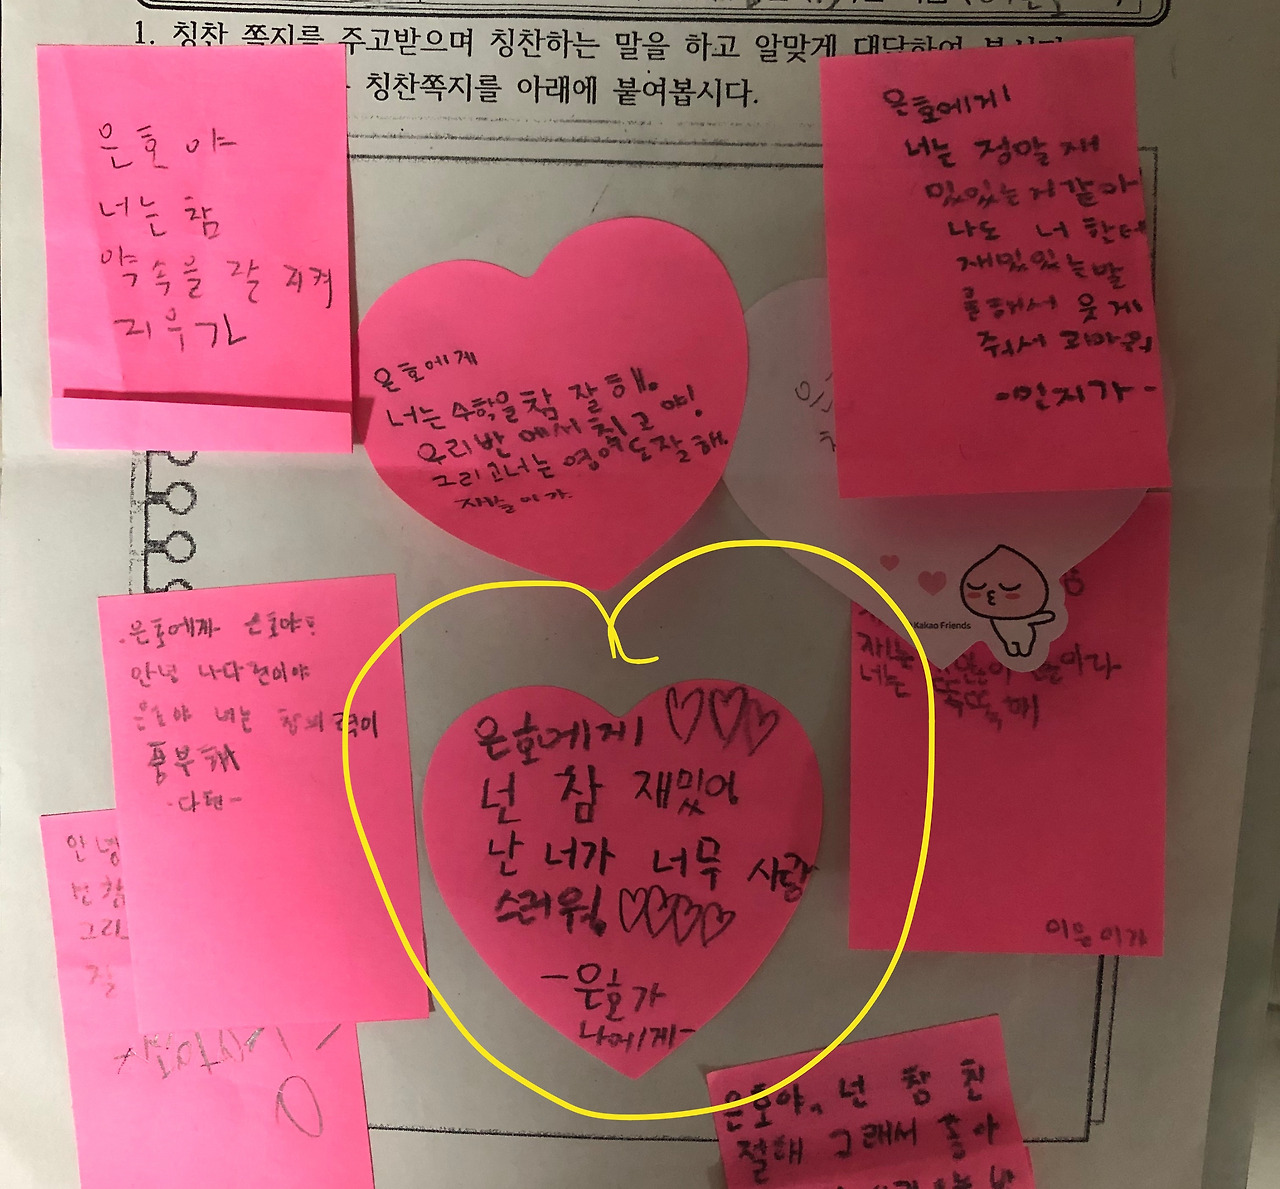 1. 칭찬 쪽지를 주고받으며 칭찬하는 말을 하고 알맞게 대답하여
칭찬쪽지를 아래에 붙여봅시다.
은호야
너는 참
약속을 잘 지켜
지우가
은호에게
너는 수학을 참 잘해.
우리반에서 최고야!
그리고 너는 영어도 잘해.
은호에게
너는 정말 재
밌있는거 같아
나도 너 한테
재밌있는말
를해서 웃게
줘서 고마워
-민지가-
Kakao Friends
너는 똑똑해
은호야!
안녕 나 다현이야
은호야 너는 창의력이
풍부해
-다현-
은호에게 ♡♡♡
넌 참 재밌어
난 너가 너무 사랑
스러워 ♡♡♡♡
-은호가
나에게-
안녕
넌 참
그리
잘
은호야, 넌 참 친
절해 그래서 좋아